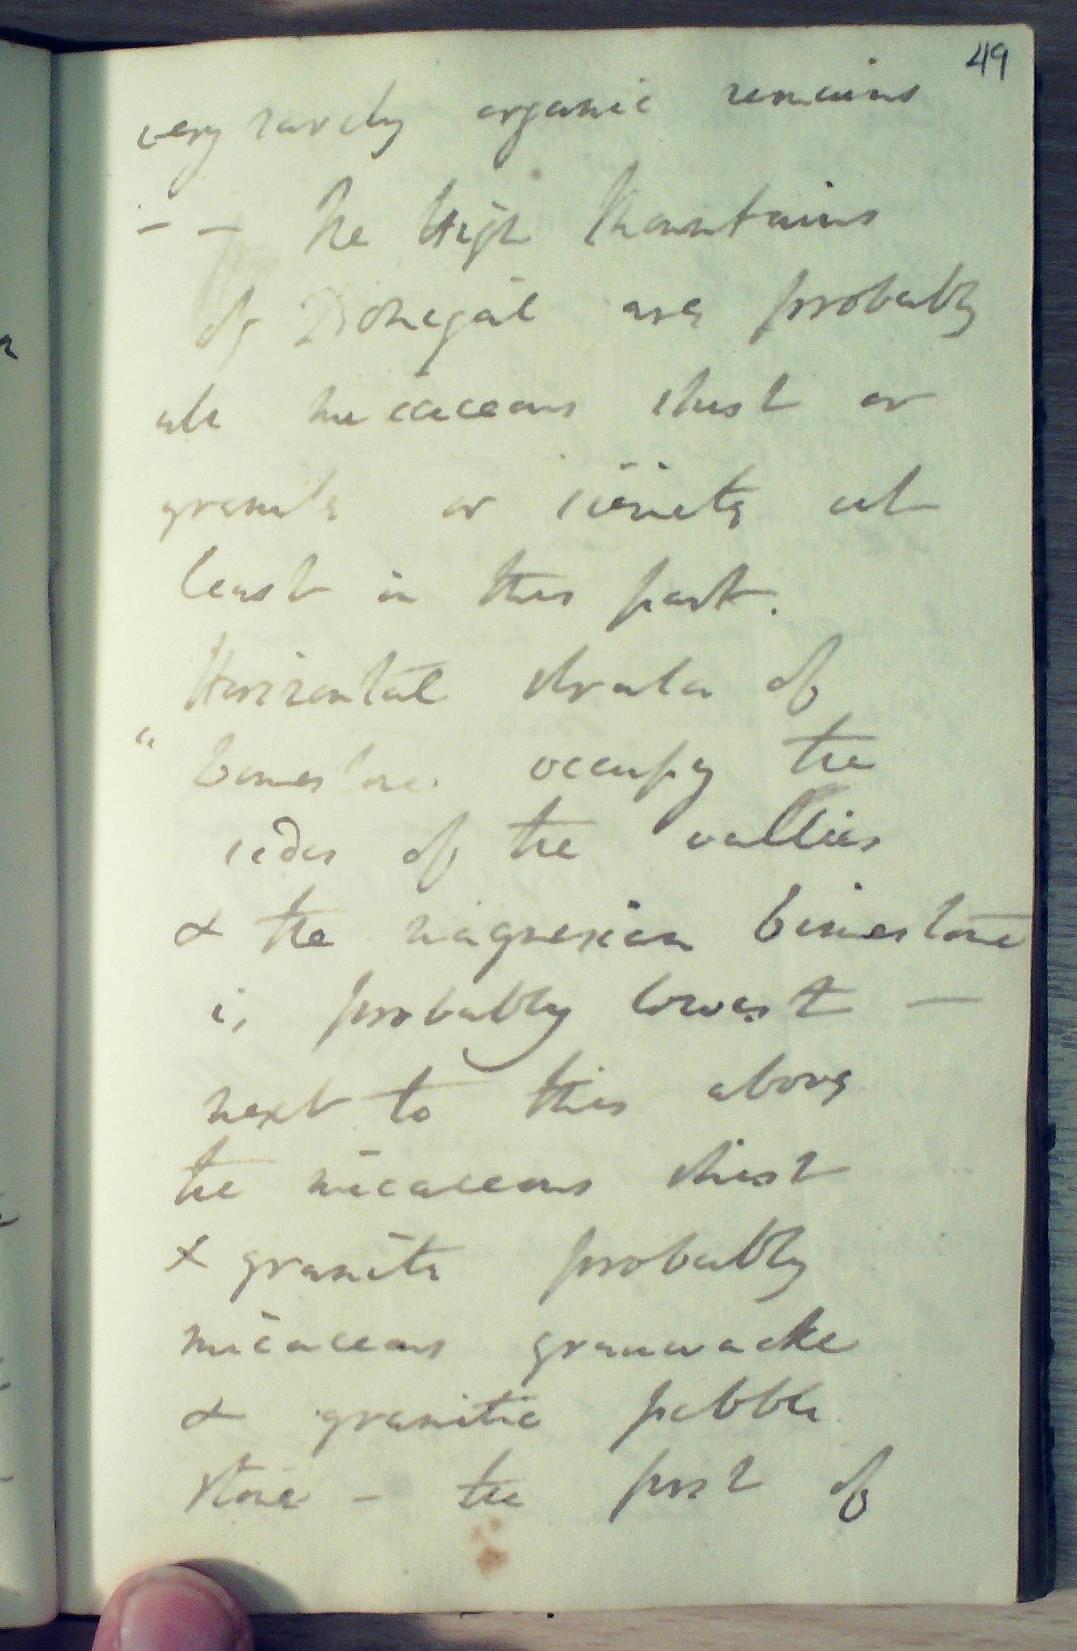 49
very rarely organic remains
- - The High Mountains
of Donegal are probably
all micaceous shist or
granite or siënite at
least in this part.
Horizontal strata of
" limestone occupy the
sides of the vallies
& the magnesian limestone
is probably lowest —
next to this above
the micaceous shist
& granite probably
micaceous grauwacke
& granitic pebble
stone - the first of